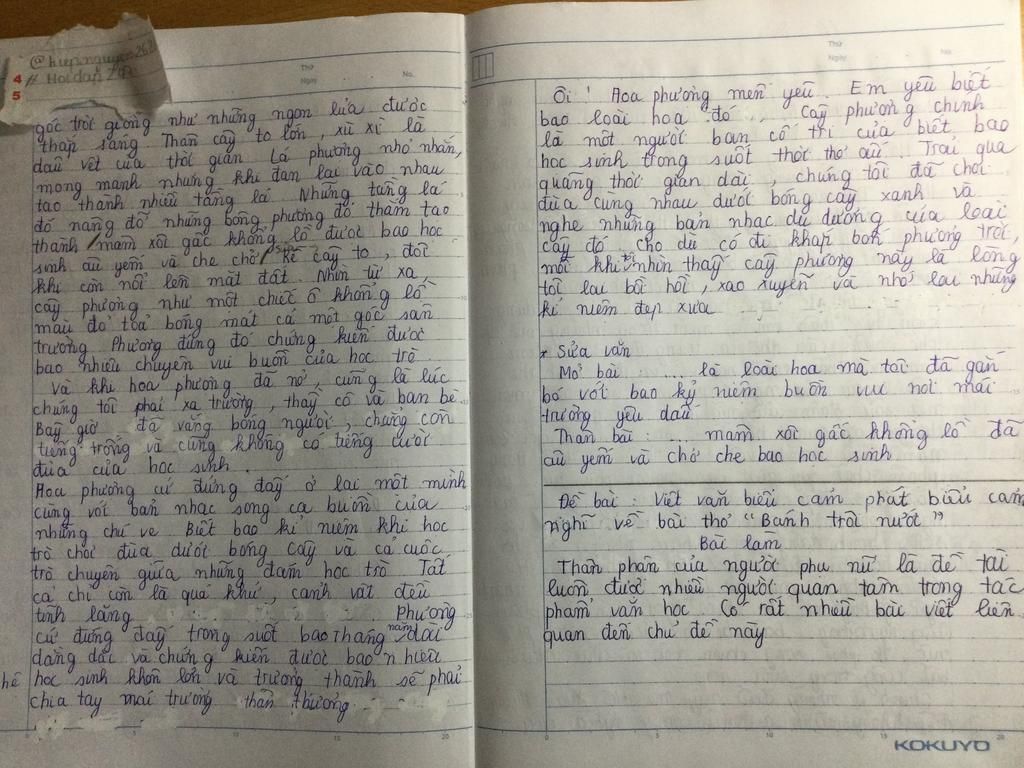 @hiepnguyen262
4 # Hoidap 247
5
Thứ
Ngày
No.
góc trời giống như những ngọn lửa được
thắp sáng. Thân cây to lớn, xù xì là
dấu vết của thời gian. Lá phượng nhỏ nhắn,
mong manh nhưng khi đan lại vào nhau
tạo thành nhiều tầng lá. Những tầng lá
đó nâng đỡ những bông phượng đỏ thắm tạo
thành mâm xôi gấc khổng lồ được bao học
sinh âu yếm và che chở. Rễ cây to, đôi
khi còn nổi lên mặt đất. Nhìn từ xa,
cây phượng như một chiếc ô khổng lồ
màu đỏ toả bóng mát cả một góc sân
trường. Phượng đứng đó chứng kiến được
bao nhiêu chuyện vui buồn của học trò.
và khi hoa phượng đã nở, cũng là lúc
chúng tôi phải xa trường, thầy cô và bạn bè.
Bây giờ đã vắng bóng người, chẳng còn
tiếng trống và cũng không có tiếng cười
đùa của học sinh.
Hoa phượng cứ đứng đấy ở lại một mình
cùng với bản nhạc song ca buồn của
những chú ve. Biết bao kỉ niệm khi học
trò chơi đùa dưới bóng cây và cả cuộc
trò chuyện giữa những đám học trò. Tất
cả chỉ còn là quá khứ, cảnh vật đều
tĩnh lặng. Phượng
cứ đứng đấy trong suốt bao tháng năm dài
dằng dặc và chứng kiến được bao nhiêu
hệ học sinh khôn lớn và trưởng thành sẽ phải
chia tay mái trường thân thương.
Thứ
Ngày
No.
Ôi! Hoa phượng mến yêu. Em yêu biết
bao loài hoa đó... Cây phượng chính
là một người bạn cố tri của biết bao
học sinh trong suốt thời thơ ấu. Trải qua
quãng thời gian dài, chúng tôi đã chơi
đùa cùng nhau dưới bóng cây xanh và
nghe những bản nhạc du dương của loài
cây đó. Cho dù có đi khắp bốn phương trời,
mỗi khi tôi nhìn thấy cây phượng này là lòng
tôi lại bồi hồi, xao xuyến và nhớ lại những
kỉ niệm đẹp xưa.
* Sửa văn
Mở bài: .... là loài hoa mà tôi đã gắn
bó với bao kỷ niệm buồn vui nơi mái
trường yêu dấu
Thân bài: ... mâm xôi gấc khổng lồ đã
âu yếm và chở che bao học sinh
Đề bài: Viết văn biểu cảm phát biểu cảm
nghĩ về bài thơ "Bánh trôi nước"
Bài làm
Thân phận của người phụ nữ là đề tài
luôn được nhiều người quan tâm trong tác
phẩm văn học. Có rất nhiều bài viết liên
quan đến chủ đề này
KOKUYO